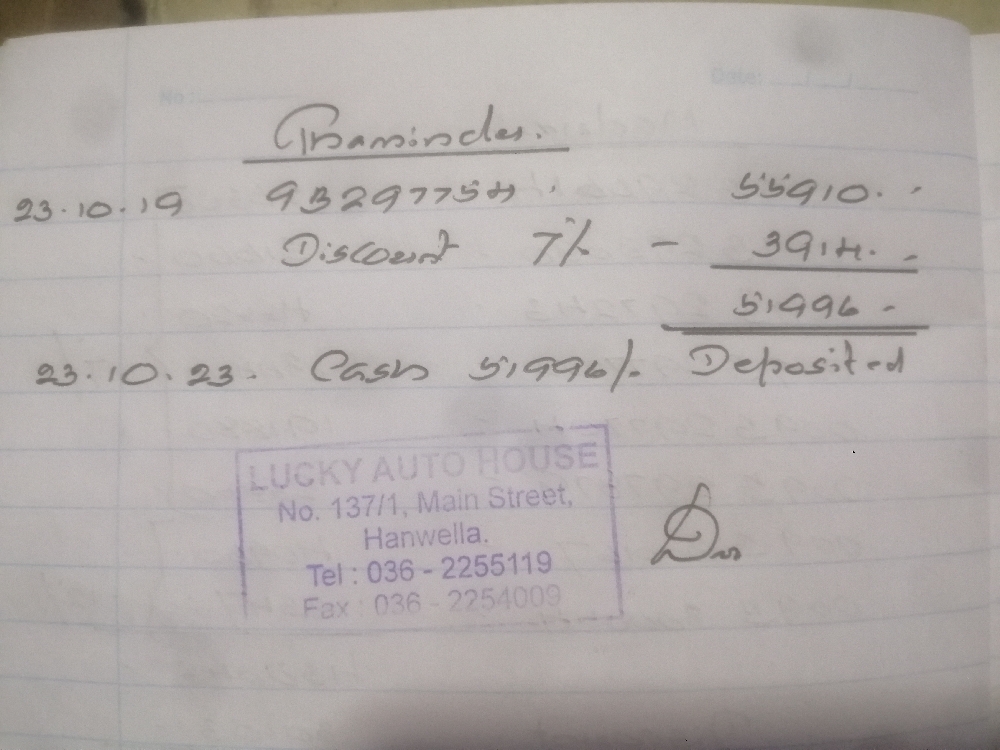 No: Date:
Tharindu.
23.10.19 93297754 . 55910. -
Discount 7% - 3914. -
51996 -
23.10.23. Cash 51996/. Deposited
LUCKY AUTO HOUSE
No. 137/1, Main Street,
Hanwella.
Tel : 036 - 2255119
Fax : 036 - 2254009